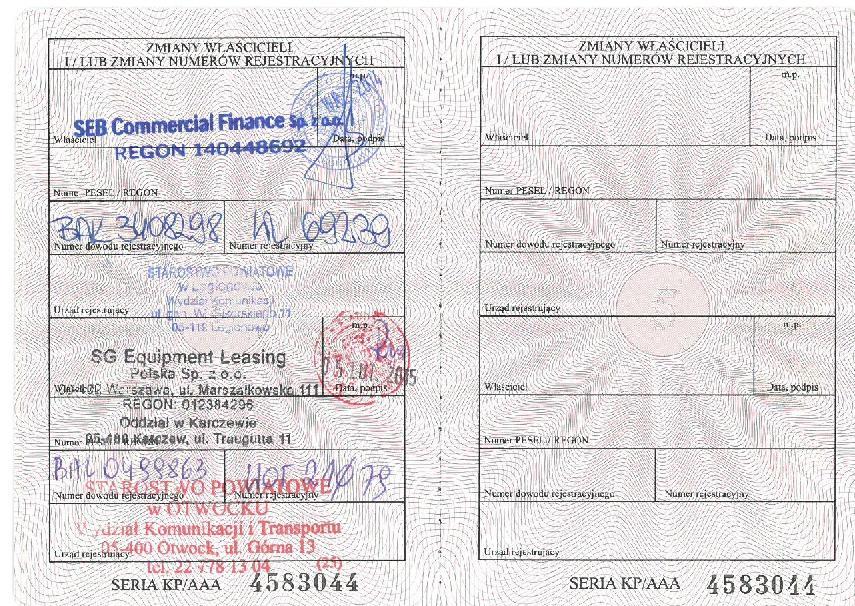 ZMIANY WŁAŚCICIELI
I / LUB ZMIANY NUMERÓW REJESTRACYJNYCH
m.p.
SEB Commercial Finance Sp. z o.o.
Właściciel
Data, podpis
REGON 140448692
Numer PESEL / REGON
BAK 3408298
Numer dowodu rejestracyjnego
Numer rejestracyjny
STAROSTWO POWIATOWE
w Legionowie
Wydział Komunikacji
Urząd rejestrujący
05-119 Legionowo
m.p.
SG Equipment Leasing
Polska Sp. z o.o.
Właściciel
Warszawa, ul. Marszałkowska 111
Data, podpis
REGON: 012384296
Oddział w Karczewie
Numer
05-480 Karczew, ul. Traugutta 11
BAL 0499863
STAROSTWO POWIATOWE
Numer dowodu rejestracyjnego
Numer rejestracyjny
w OTWOCKU
Wydział Komunikacji i Transportu
05-400 Otwock, ul. Górna 13
Urząd rejestrujący
tel. 22 778 13 04
(25)
SERIA KP/AAA 4583044
ZMIANY WŁAŚCICIELI
I / LUB ZMIANY NUMERÓW REJESTRACYJNYCH
m.p.
Właściciel
Data, podpis
Numer PESEL / REGON
Numer dowodu rejestracyjnego
Numer rejestracyjny
Urząd rejestrujący
m.p.
Właściciel
Data, podpis
Numer PESEL / REGON
Numer dowodu rejestracyjnego
Numer rejestracyjny
Urząd rejestrujący
SERIA KP/AAA 4583044